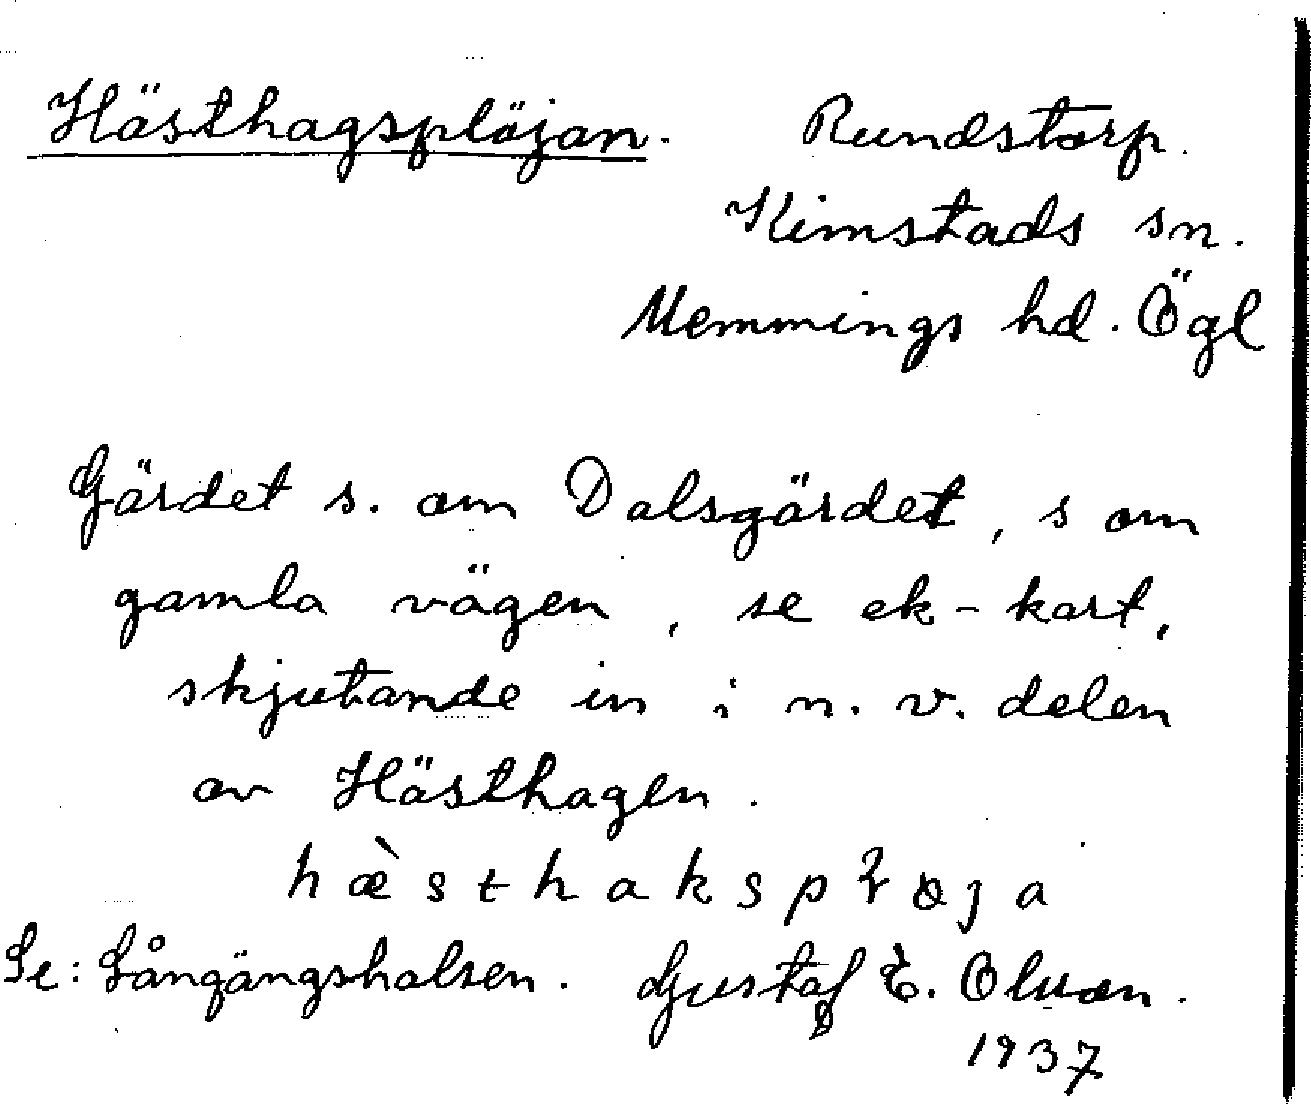 Hästhagsplöjan. Rundstorp.
Kimstads sn.
Memmings hd. Ögl
Gärdet s. om Dalsgärdet, s om
gamla vägen, se ek-kart,
skjutande in i n. v. delen
av Hästhagen.
hæ̀sthakspɫøja
Se: Långängshalsen. Gustaf E. Olsson.
1937